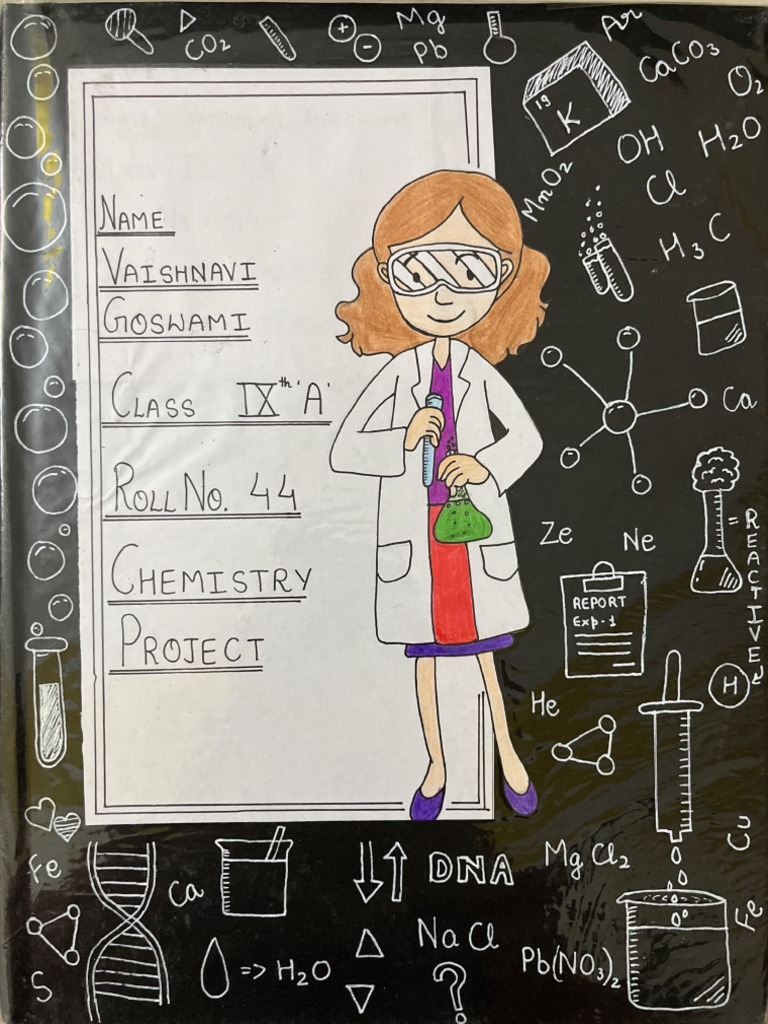 Mg
CO₂
Pb
Ar
CaCO₃
O₂
19
K
OH
H₂O
MnO₂
Cl
H₃C
NAME
VAISHNAVI
GOSWAMI
CLASS IXth 'A'
ROLL NO. 44
CHEMISTRY
PROJECT
Ca
= REACTIVE
Ze
Ne
REPORT
Exp-1
H
He
Cu
Fe
Ca
DNA
MgCl₂
Fe
NaCl
S
=> H₂O
?
Pb(NO₃)₂